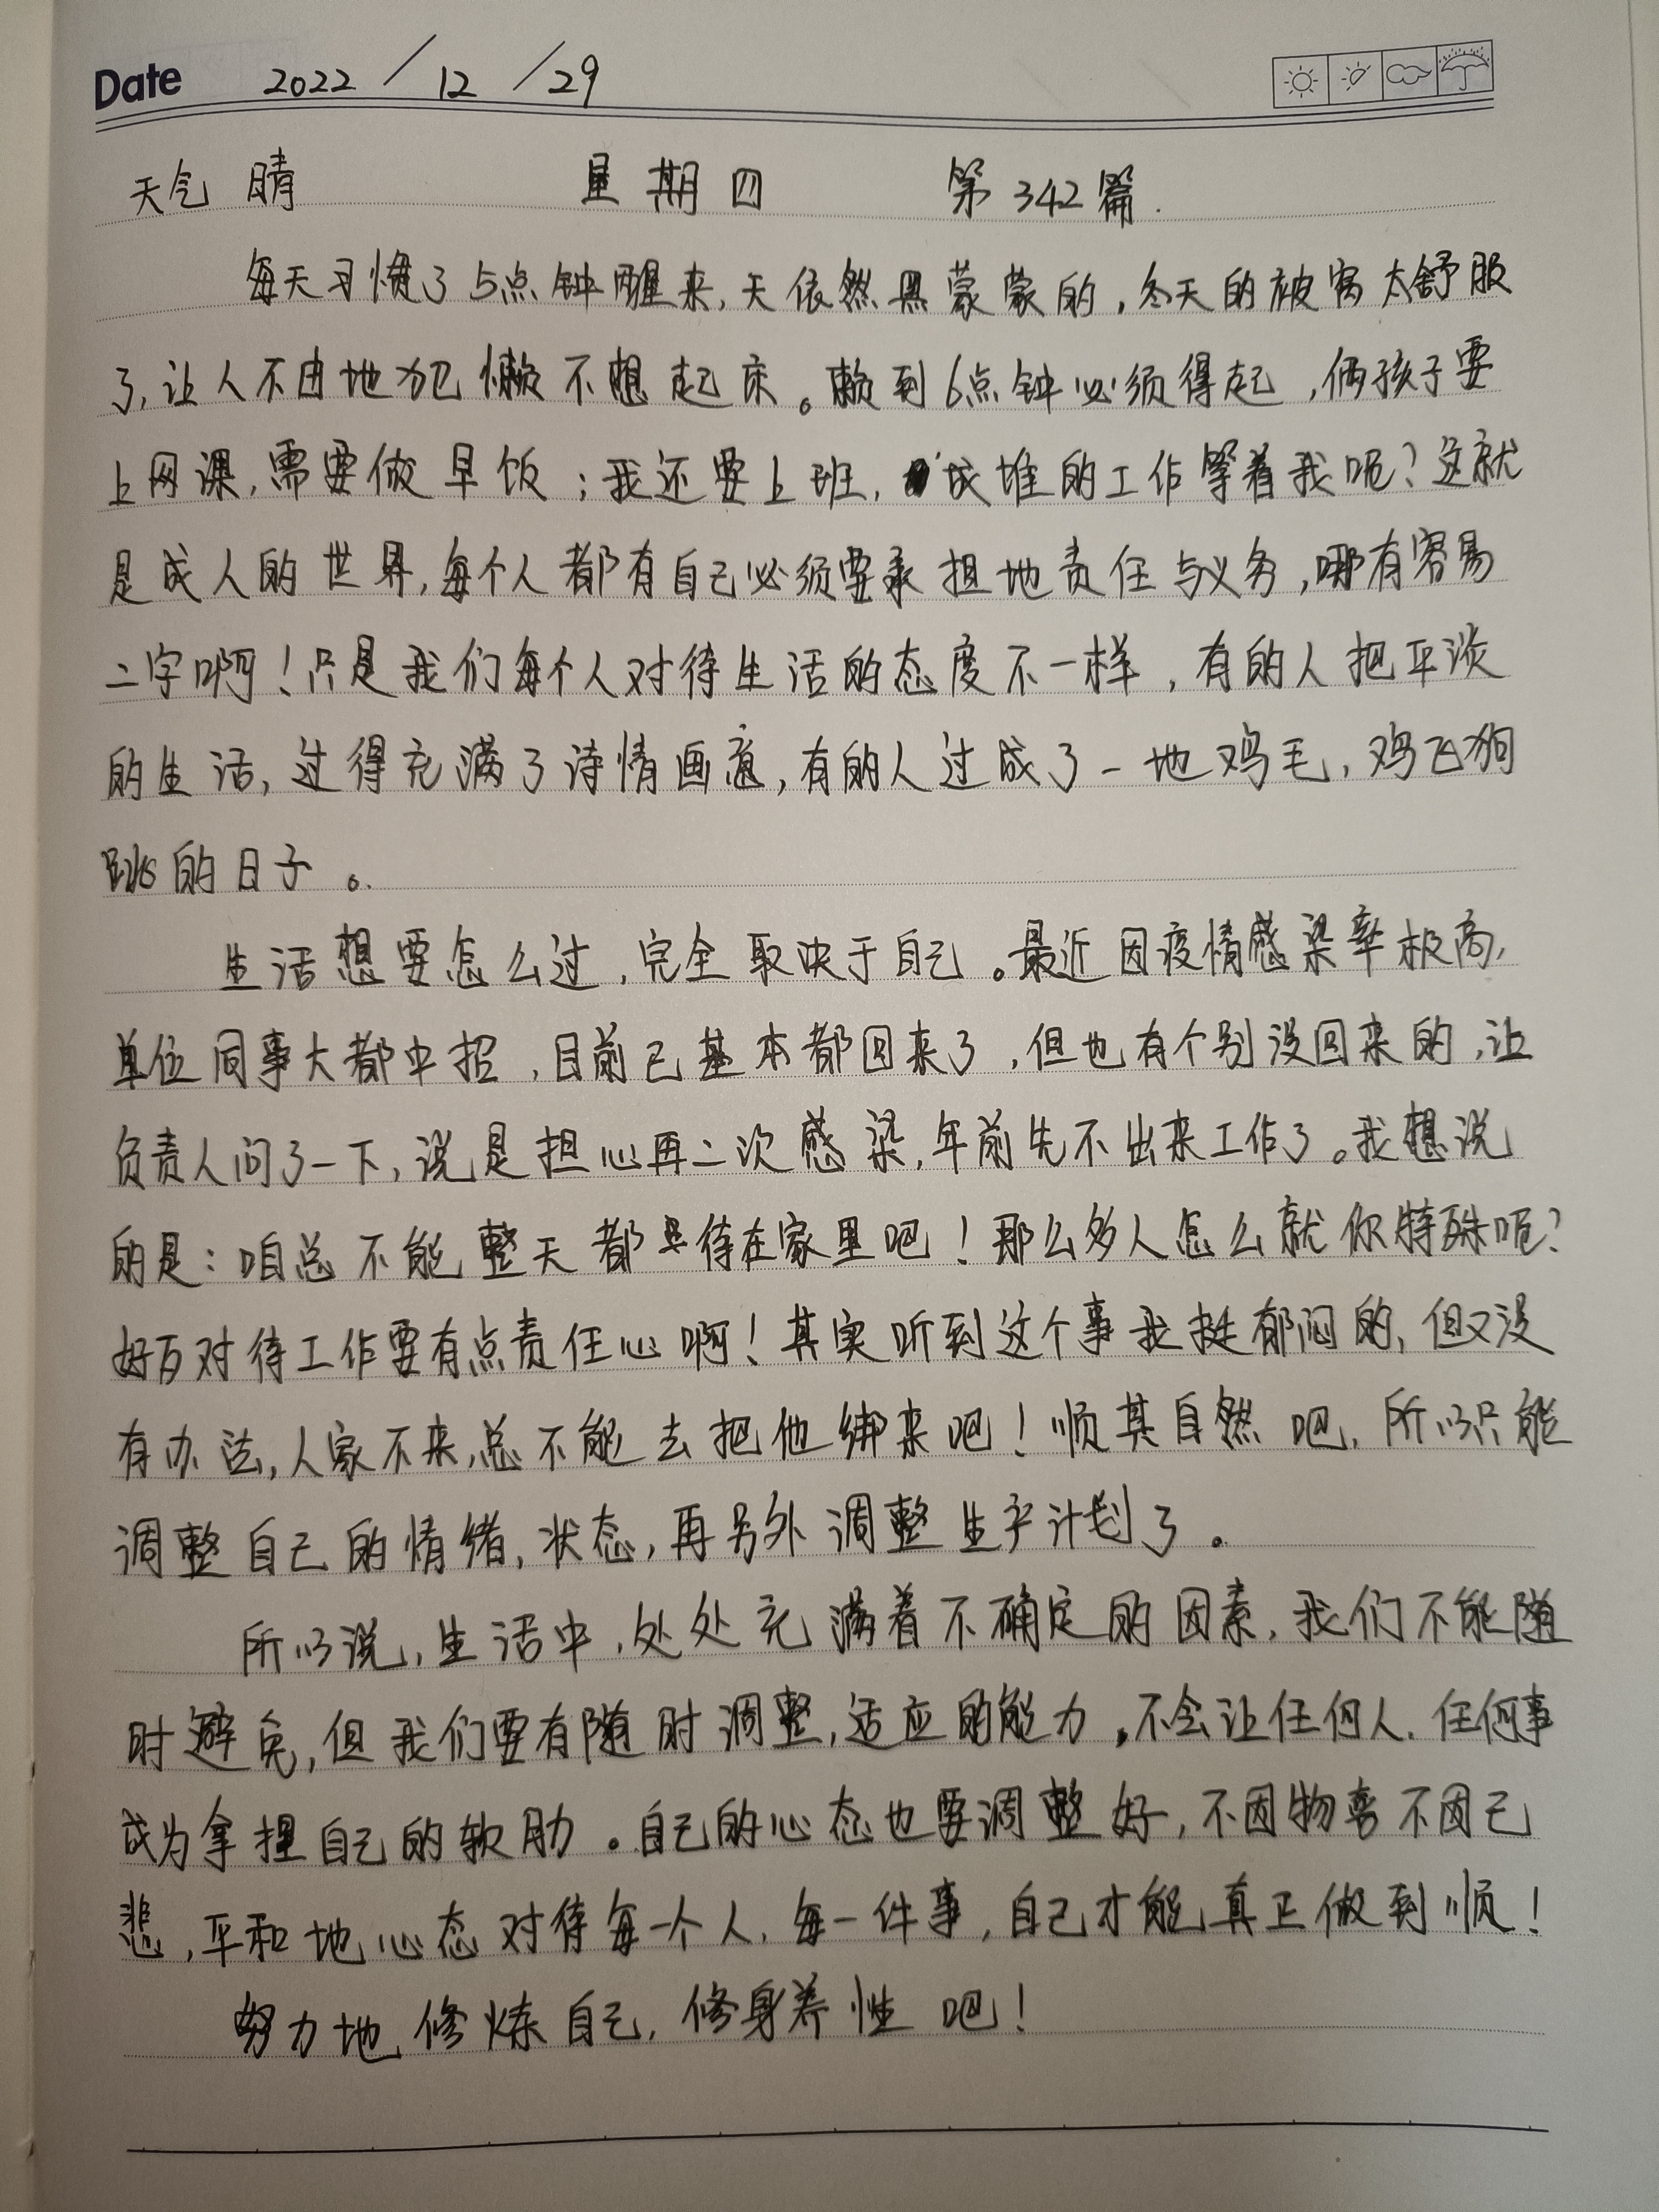 Date 2022/12/29
天气 晴 星期四 第342篇.
每天习惯了5点钟醒来,天依然黑蒙蒙的,冬天的被窝太舒服
了,让人不由地犯懒不想起床。赖到6点钟必须得起,俩孩子要
上网课,需要做早饭;我还要上班,成堆的工作等着我呢?这就
是成人的世界,每个人都有自己必须要承担地责任与义务,哪有容易
二字啊!只是我们每个人对待生活的态度不一样,有的人把平淡
的生活,过得充满了诗情画意,有的人过成了一地鸡毛,鸡飞狗
跳的日子。
生活想要怎么过,完全取决于自己。最近因疫情感染率极高,
单位同事大都中招,目前已基本都回来了,但也有个别没回来的,让
负责人问了一下,说是担心再二次感染,年前先不出来工作了。我想说
的是:咱总不能整天都待在家里吧!那么多人怎么就你特殊呢?
好歹对待工作要有点责任心啊!其实听到这个事我挺郁闷的,但又没
有办法,人家不来,总不能去把他绑来吧!顺其自然吧,所以只能
调整自己的情绪,状态,再另外调整生产计划了。
所以说,生活中,处处充满着不确定的因素,我们不能随
时避免,但我们要有随时调整,适应的能力,不会让任何人.任何事
成为拿捏自己的软肋。自己的心态也要调整好,不因物喜不因己
悲,平和地心态对待每一个人.每一件事,自己才能真正做到顺!
努力地修炼自己,修身养性吧!